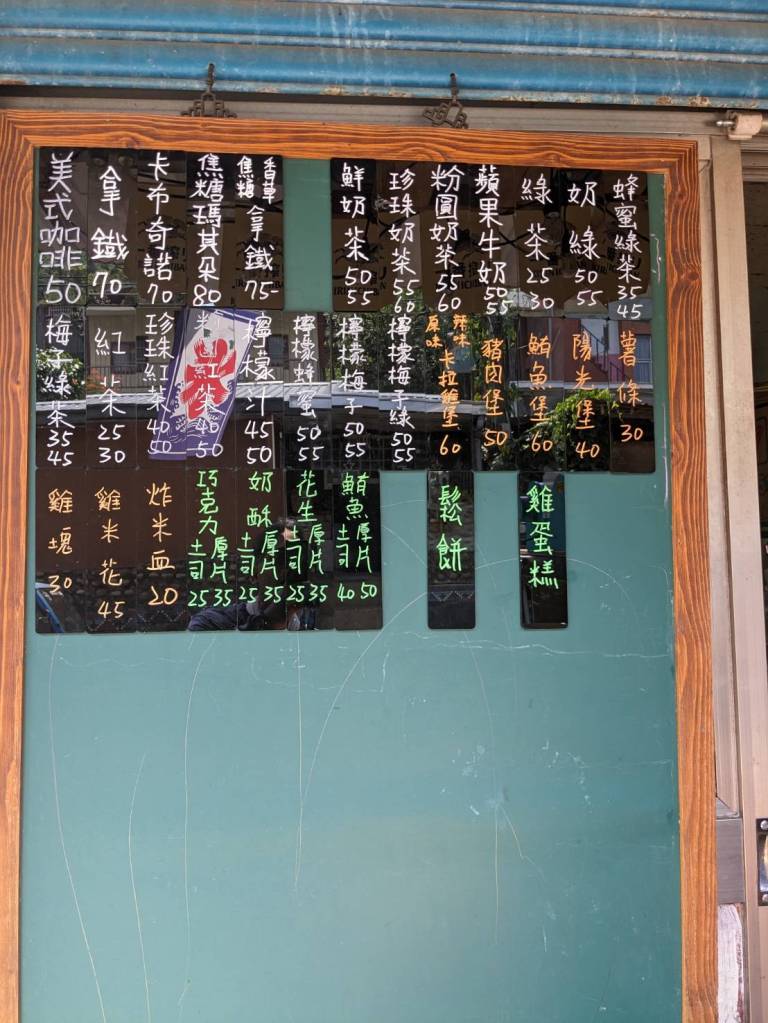 美式咖啡 50
拿鐵 70
卡布奇諾 70
焦糖瑪其朵 80
香草 焦糖 拿鐵 75-
鮮奶茶 50 55
珍珠奶茶 55 60
粉圓奶茶 55 60
蘋果牛奶 50 55
綠茶 25 30
奶綠 50 55
蜂蜜綠茶 35 45
梅子綠茶 35 45
紅茶 25 30
珍珠紅茶 40 50
粉圓紅茶 40 50
檸檬汁 45 50
檸檬蜂蜜 50 55
檸檬梅子 50 55
檸檬梅子綠 50 55
辣味 原味 卡拉雞堡 60
豬肉堡 50
鮪魚堡 60
陽光堡 40
薯條 30
雞塊 30
雞米花 45
炸米血 20
巧克力 土司 25 厚片 35
奶酥 土司 25 厚片 35
花生 土司 25 厚片 35
鮪魚 土司 40 厚片 50
鬆餅
雞蛋糕